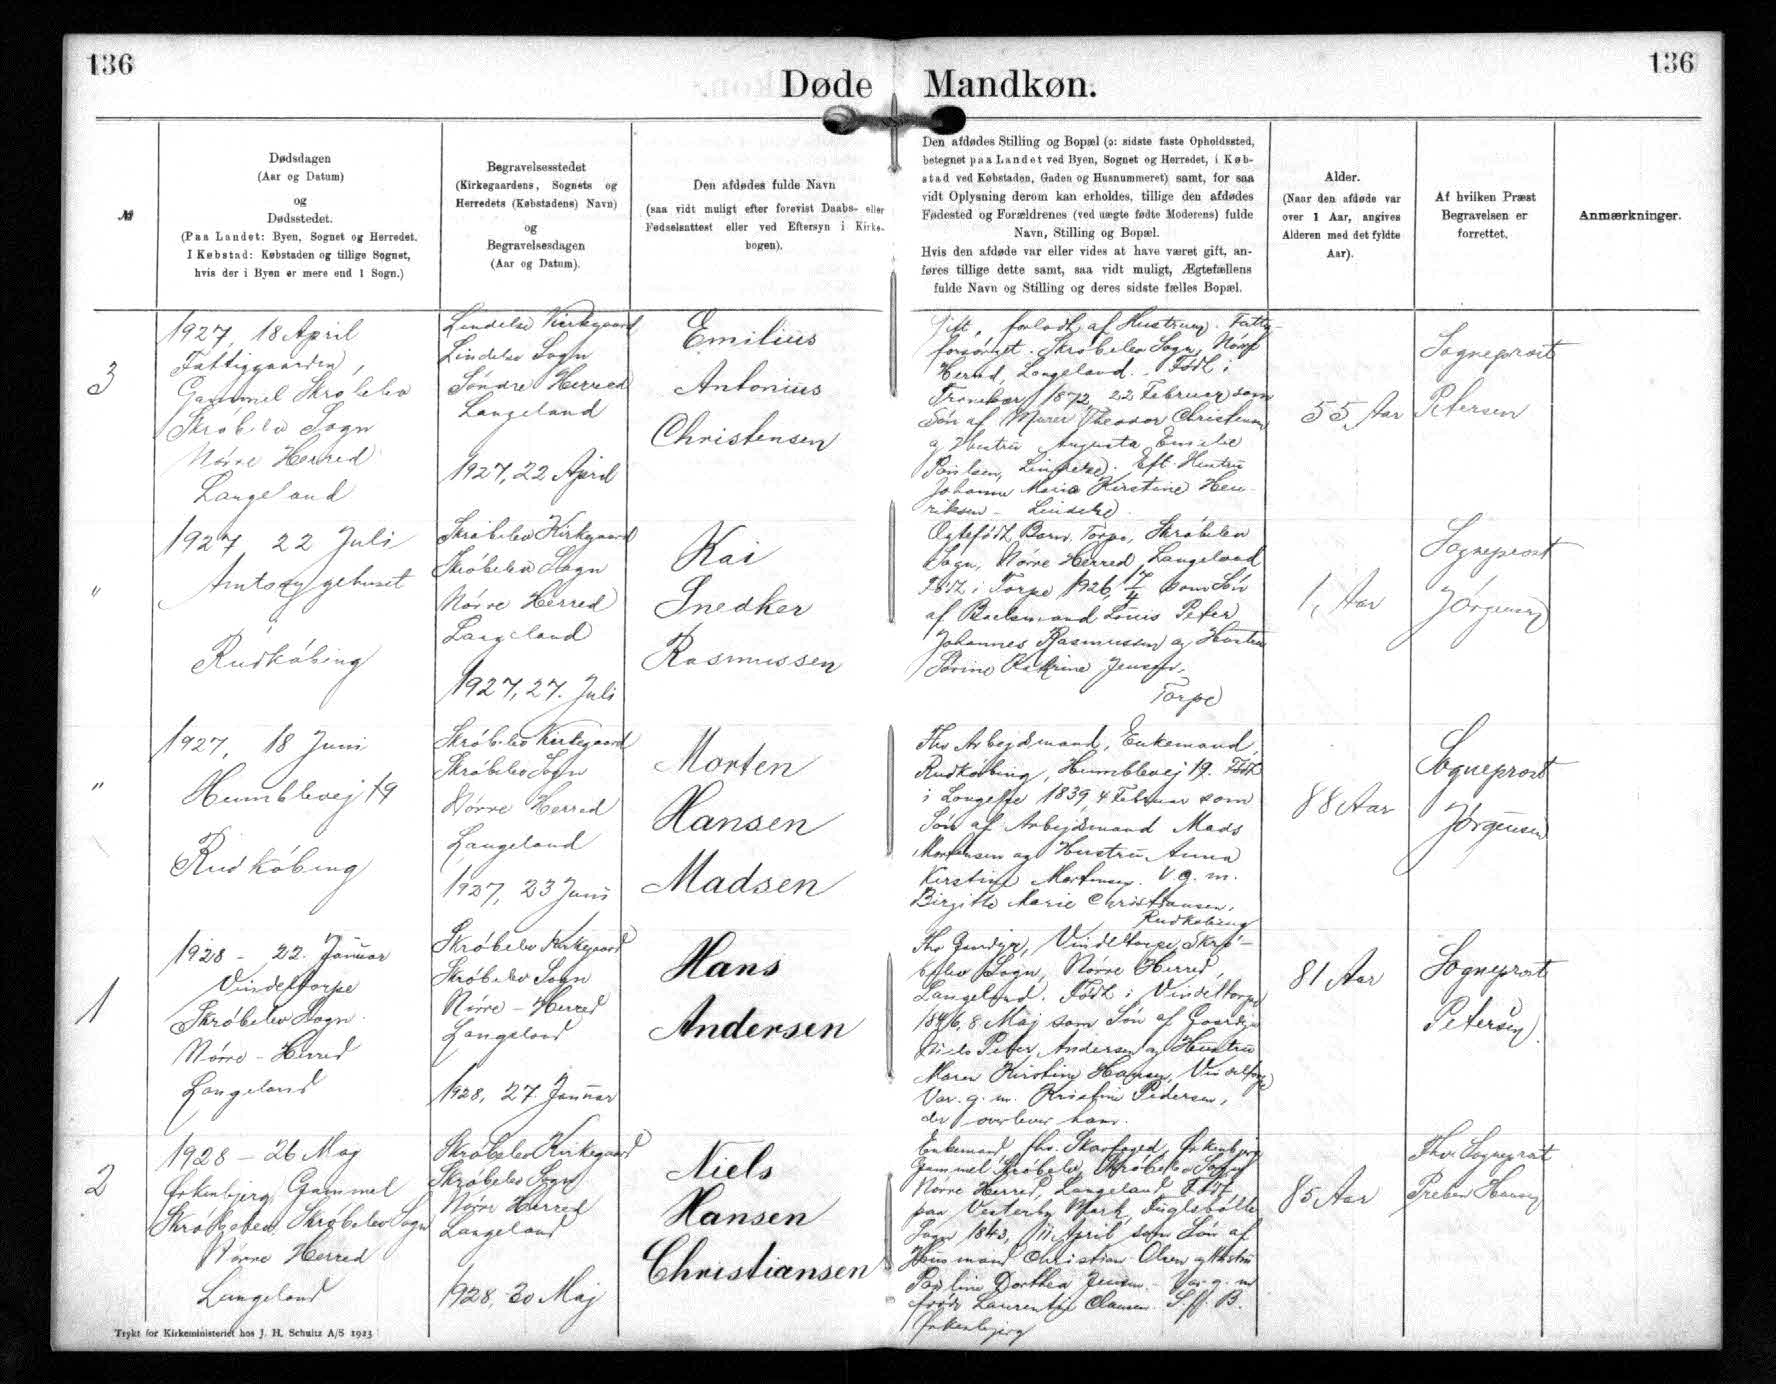 136
136
Døde Mandkøn.
№
Dødsdagen
(Aar og Datum)
og
Dødsstedet.
(Paa Landet: Byen, Sognet og Herredet.
I Købstad: Købstaden og tillige Sognet,
hvis der i Byen er mere end 1 Sogn.)
Begravelsesstedet
(Kirkegaardens, Sognets og
Herredets (Købstadens) Navn)
og
Begravelsesdagen
(Aar og Datum).
Den afdødes fulde Navn
(saa vidt muligt efter forevist Daabs- eller
Fødselsattest eller ved Eftersyn i Kirke-
bogen).
Den afdødes Stilling og Bopæl (ɔ: sidste faste Opholdssted,
betegnet paa Landet ved Byen, Sognet og Herredet, i Køb-
stad ved Købstaden, Gaden og Husnummeret) samt, for saa
vidt Oplysning derom kan erholdes, tillige den afdødes
Fødested og Forældrenes (ved uægte fødte Moderens) fulde
Navn, Stilling og Bopæl.
Hvis den afdøde var eller vides at have været gift, an-
føres tillige dette samt, saa vidt muligt, Ægtefællens
fulde Navn og Stilling og deres sidste fælles Bopæl.
Alder.
(Naar den afdøde var
over 1 Aar, angives
Alderen med det fyldte
Aar).
Af hvilken Præst
Begravelsen er
forrettet.
Anmærkninger.
3
1927, 18 April
Fattiggaarden,
Gammel Skrøbelev
Skrøbelev Sogn
Nørre Herred
Langeland
Lindelse Kirkegaard
Lindelse Sogn
Søndre Herred
Langeland
1927, 22 April
Emilius
Antonius
Christensen
Gift, forladt af Hustruen. Fattig-
forsørget. Skrøbelev Sogn, Nørre
Herred, Langeland. Født i
Tranekær 1872 22 Februar som
Søn af Murer Theodor Christensen
og Hustru Augusta Emilie
Poulsen, Lindelse. Eft. Hustru
Johanne Marie Kirstine Hen-
riksen - Lindelse.
55 Aar
Sogneprovst
Petersen
"
1927 22 Juli
Amtssygehuset
Rudkøbing
Skrøbelev Kirkegaard
Skrøbelev Sogn
Nørre Herred
Langeland
1927, 27. Juli
Kai
Snedker
Rasmussen
Ægtefødt Barn, Torpe, Skrøbelev
Sogn, Nørre Herred, Langeland
Født i Torpe 1926, 17/4 som Søn
af Boelsmand Louis Peter
Johannes Rasmussen og Hustru
Sørine Katrine Jensen,
Torpe
1, Aar
Sogneprovst
Jørgensen
"
1927, 18 Juni
Humblevej 19
Rudkøbing
Skrøbelev Kirkegaard
Skrøbelev Sogn
Nørre Herred
Langeland
1927, 23 Juni
Morten
Hansen
Madsen
Fhv Arbejdsmand, Enkemand,
Rudkøbing, Humblevej 19. Født
i Longelse 1839, 4 Februar som
Søn af Arbejdsmand Mads
Mortensen og Hustru Anna
Kirstine Mortensen. V. g. m.
Birgitte Marie Christiansen,
Rudkøbing
88 Aar
Sogneprovst
Jørgensen
1
1928 - 22. Januar
Vindeltorpe
Skrøbelev Sogn
Nørre - Herred
Langeland
Skrøbelev Kirkegaard
Skrøbelev Sogn
Nørre - Herred
Langeland
1928, 27 Januar
Hans
Andersen
Fhv Gaardejer, Vindeltorpe, Skrø-
belev Sogn, Nørre Herred,
Langeland. Født i Vindeltorpe
1846, 8 Maj som Søn af Gaardejer
Niels Peter Andersen og Hustru
Maren Kirstine Hansen, Vindeltorpe
Var. g. m. Kristine Pedersen,
der overlever ham.
81 Aar
Sogneprovst
Petersen
2
1928 - 26 Maj
Gammel
Skrøbelev, Skrøbelev Sogn
Nørre Herred
Langeland
Skrøbelev Kirkegaard
Skrøbelev Sogn
Nørre Herred
Langeland
1928, 30 Maj
Niels
Hansen
Christiansen
Enkemand, fhv. Skovfoged,
Gammel Skrøbelev, Skrøbelev Sogn
Nørre Herred, Langeland Født
paa Vesterby Mark, Fuglsbølle
Sogn 1843, 11 April som Søn af
Husmand Christian Olsen og Hustru
Pauline Dorthea Jensen. Var g. m
Laurentze Clausen. S. f. B.
85 Aar
Fhv. Sogneprovst
Preben Hansen
Trykt for Kirkeministeriet hos J. H. Schultz A/S 1923